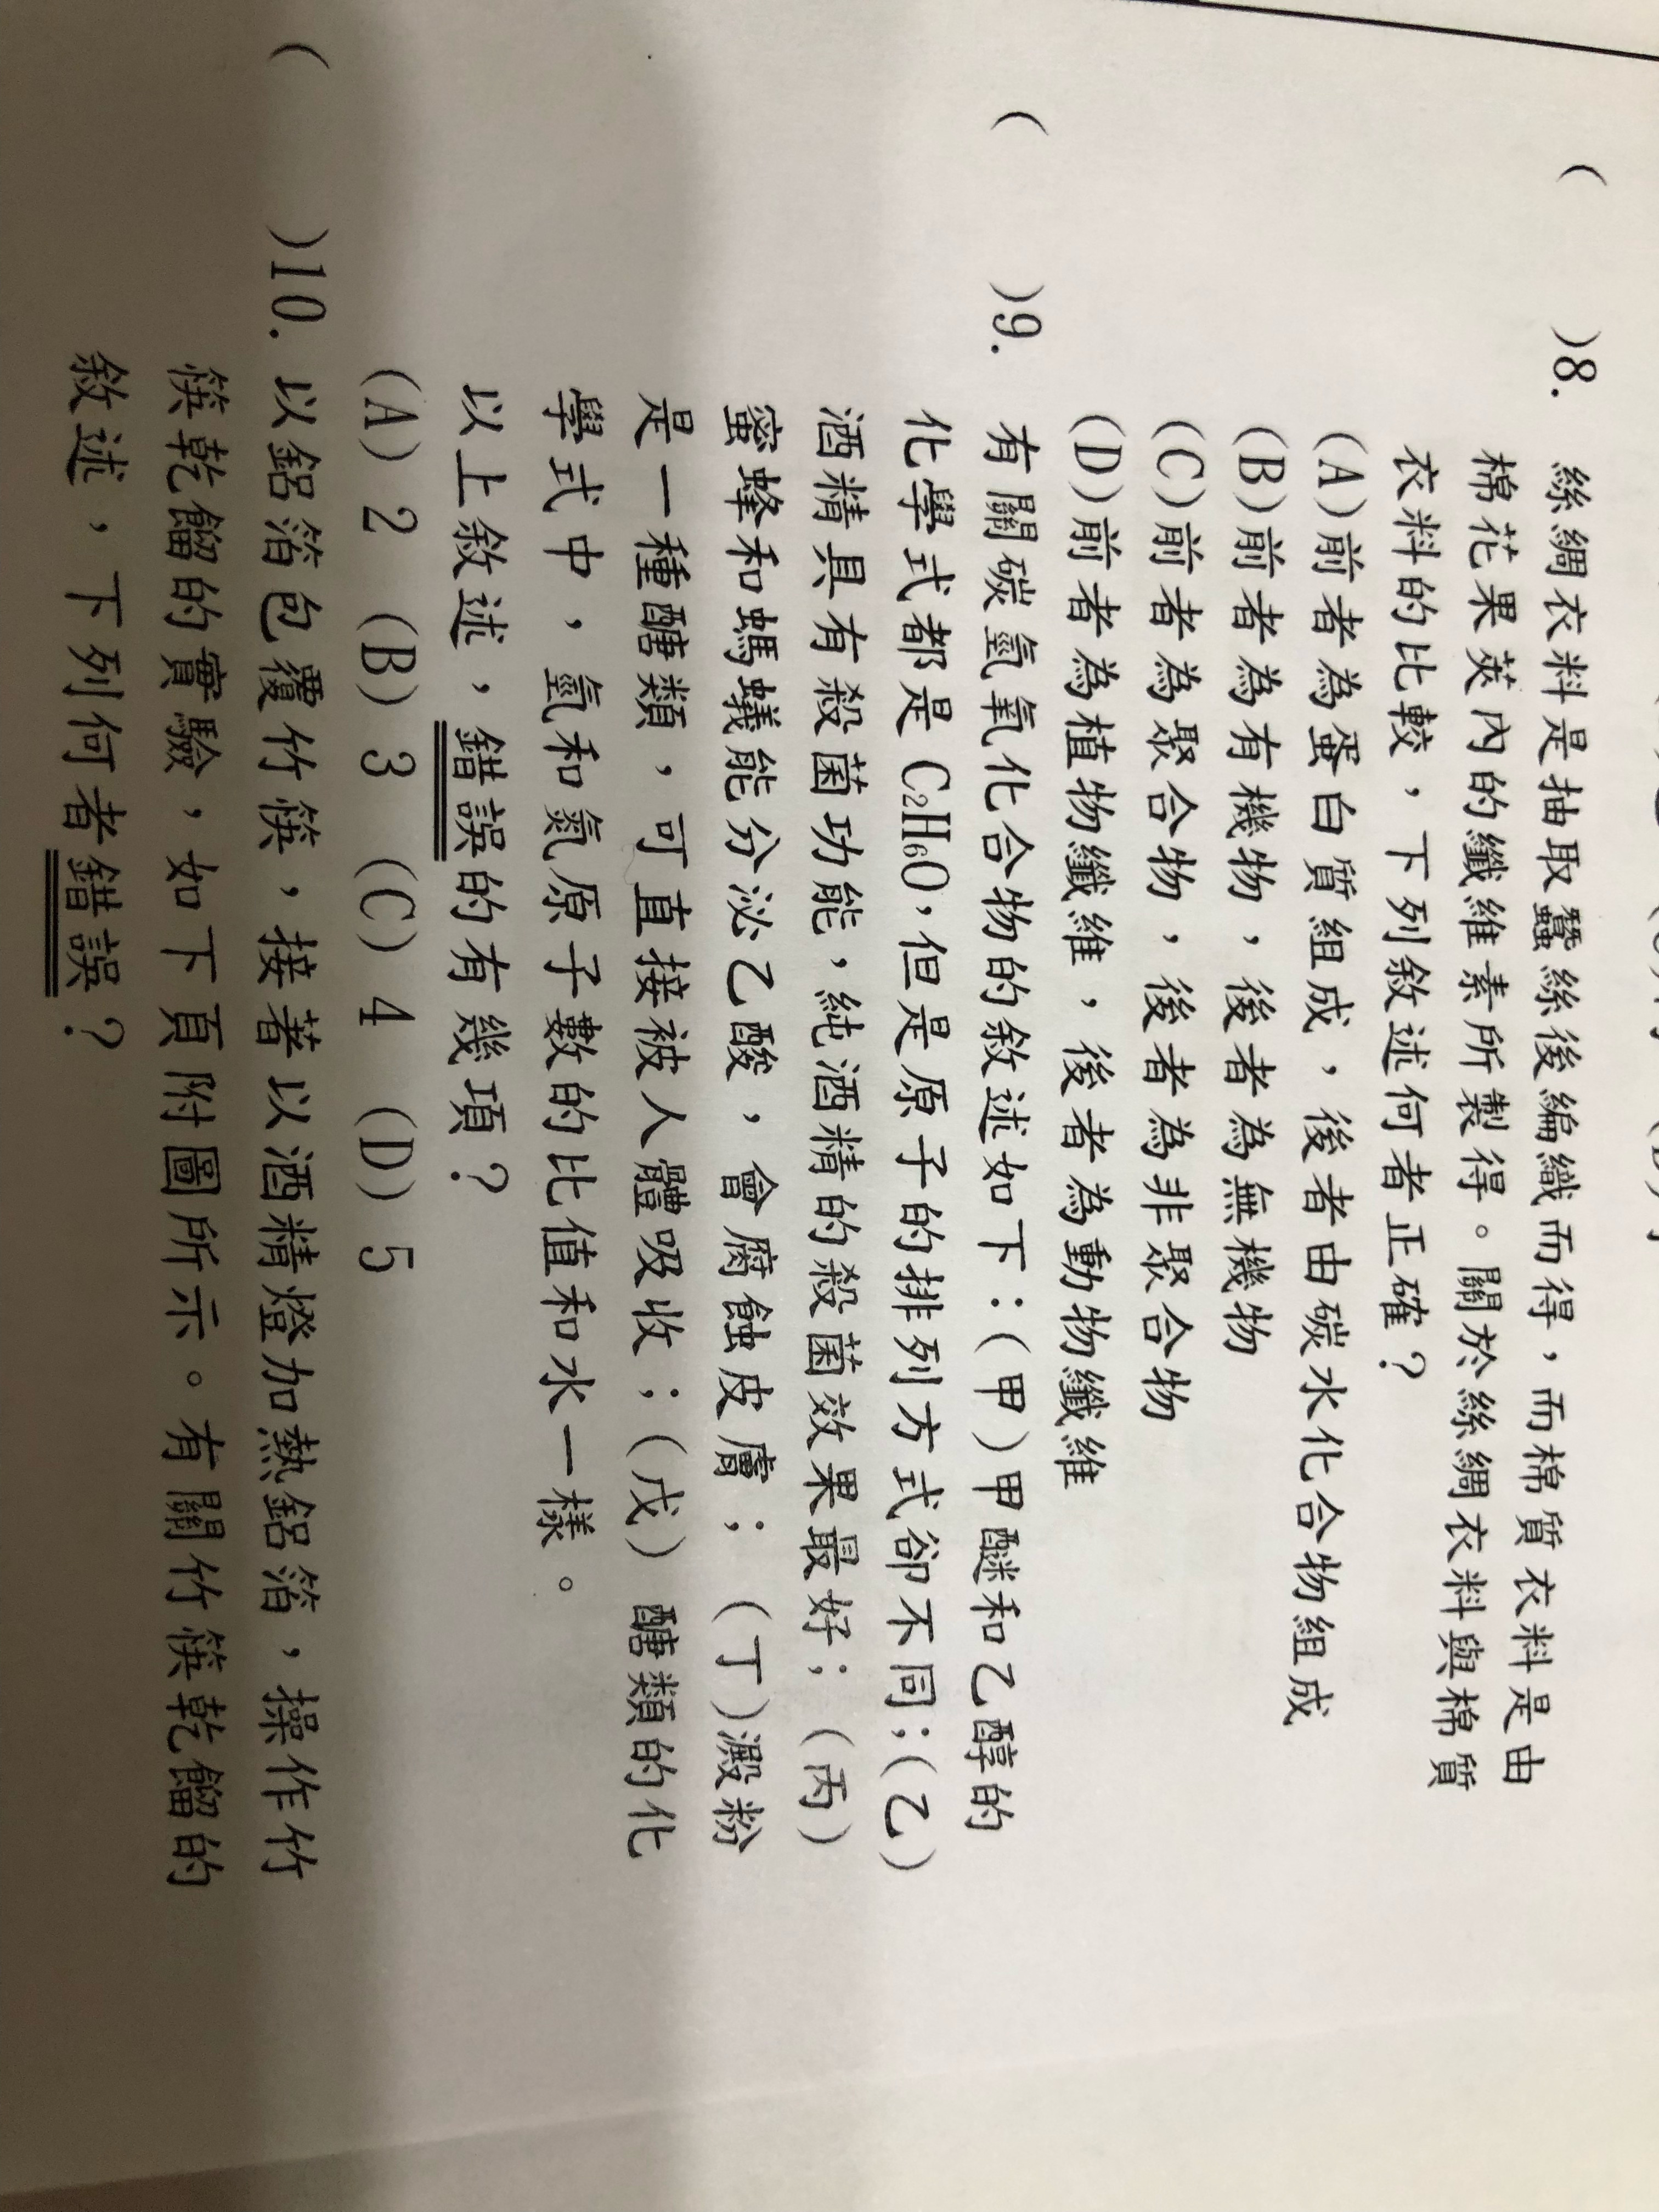 ( )8. 絲綢衣料是抽取蠶絲後編織而得，而棉質衣料是由
棉花果莢內的纖維素所製得。關於絲綢衣料與棉質
衣料的比較，下列敘述何者正確？
(A)前者為蛋白質組成，後者由碳水化合物組成
(B)前者為有機物，後者為無機物
(C)前者為聚合物，後者為非聚合物
(D)前者為植物纖維，後者為動物纖維
( )9. 有關碳氫氧化合物的敘述如下：(甲)甲醚和乙醇的
化學式都是 C₂H₆O，但是原子的排列方式卻不同；(乙)
酒精具有殺菌功能，純酒精的殺菌效果最好；(丙)
蜜蜂和螞蟻能分泌乙酸，會腐蝕皮膚；(丁)澱粉
是一種醣類，可直接被人體吸收；(戊) 醣類的化
學式中，氫和氮原子數的比值和水一樣。
以上敘述，錯誤的有幾項？
(A) 2 (B) 3 (C) 4 (D) 5
( )10. 以鋁箔包覆竹筷，接著以酒精燈加熱鋁箔，操作竹
筷乾餾的實驗，如下頁附圖所示。有關竹筷乾餾的
敘述，下列何者錯誤？